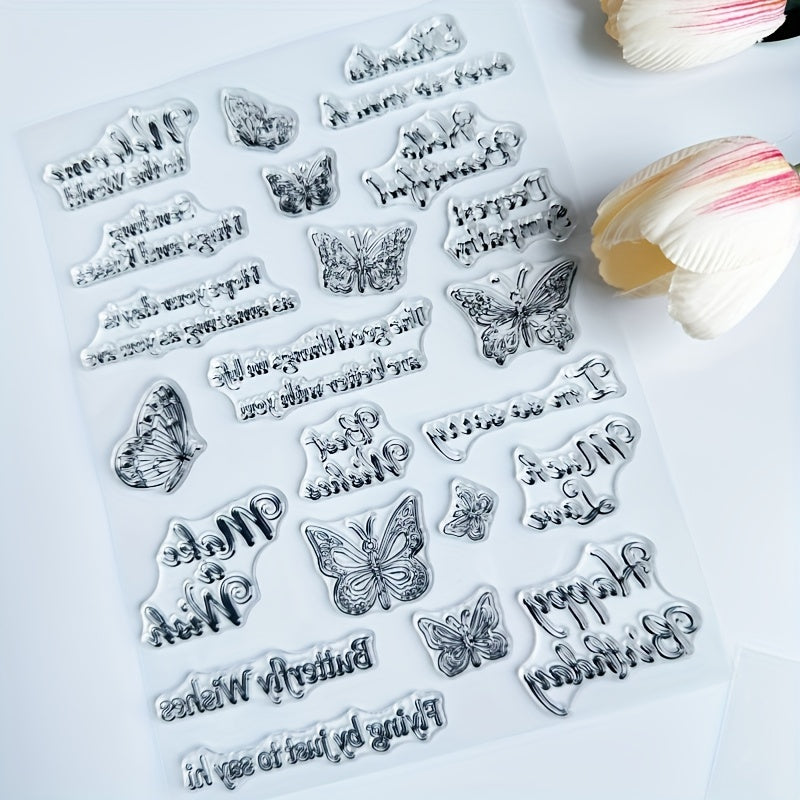 Welcome
to the World
Hello
Beautiful
Sending
Hugs and Kisses
Deepest
Sympathy
Hope your day is
as amazing as you are
The good things in life
are better with you
Best
Wishes
Much
Love
Make
a
Wish
Happy
Birthday
Butterfly Wishes
Flying by just to say hi